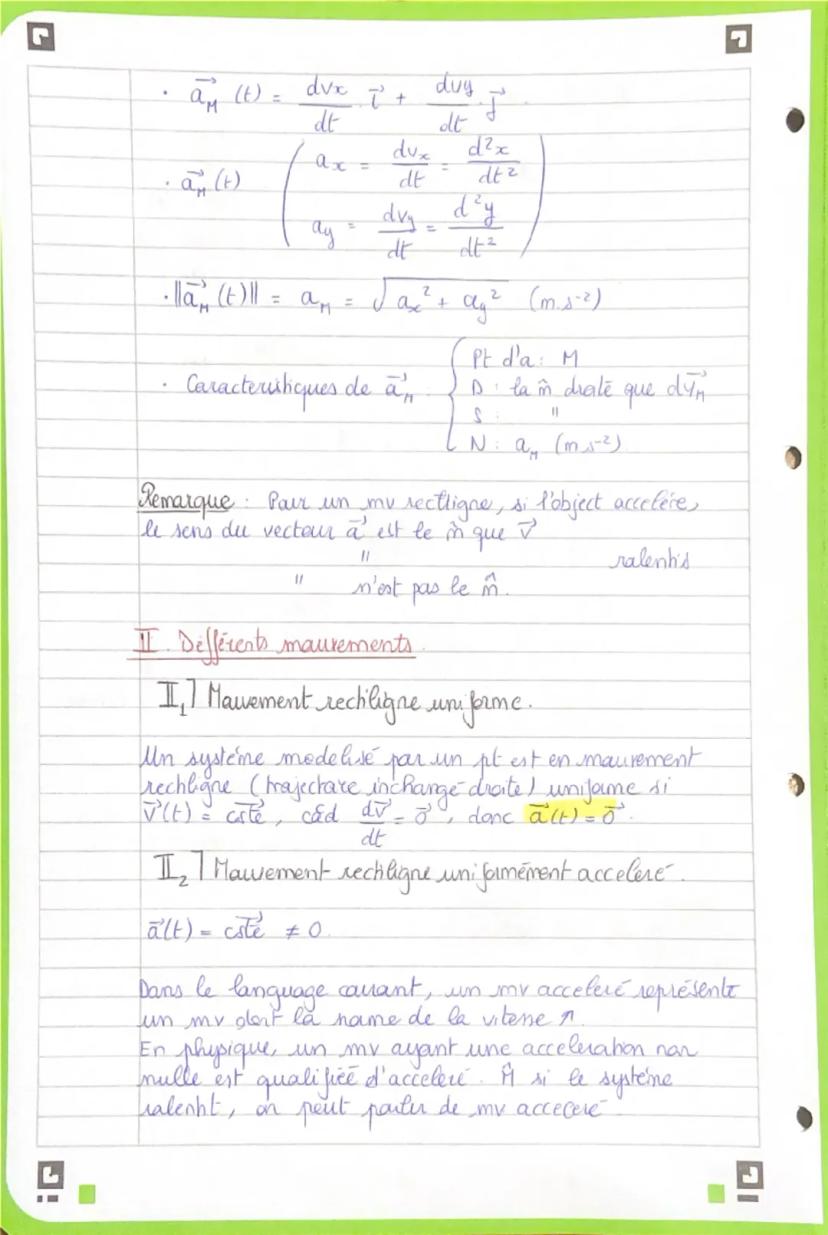 · a⃗_M (t) = dvx/dt i⃗ + dvy/dt j⃗
· a⃗_M (t) ( ax = dvx/dt = d²x/dt²
ay = dvy/dt = d²y/dt² )
· ||a⃗_M (t)|| = a_M = √(ax² + ay²) (m.s⁻²)
· Caractéristiques de a⃗_M { Pt d'a : M
D : la m̂ droite que dv⃗_M
S : "
N : a_M (m.s⁻²)
Remarque : Pour un mv rectligne, si l'object accélère,
le sens du vecteur a⃗ est le m̂ que v⃗
" ralentis
" n'est pas le m̂.
II. Différents mouvements.
II₁] Mouvement rectiligne uniforme.
Un système modélisé par un pt est en mouvement
rectiligne (trajectoire inchangé droite) uniforme si
v⃗(t) = cste⃗, càd dv⃗/dt = 0⃗, donc a⃗(t) = 0⃗.
II₂] Mouvement rectiligne uniformément acceleré.
a⃗(t) = cste⃗ ≠ 0.
Dans le language courant, un mv acceleré représente
un mv dont la norme de la vitesse ↗
En physique, un mv ayant une acceleration non
nulle est qualifiée d'acceleré. M̂ si le système
ralentit, on peut parler de mv acceleré